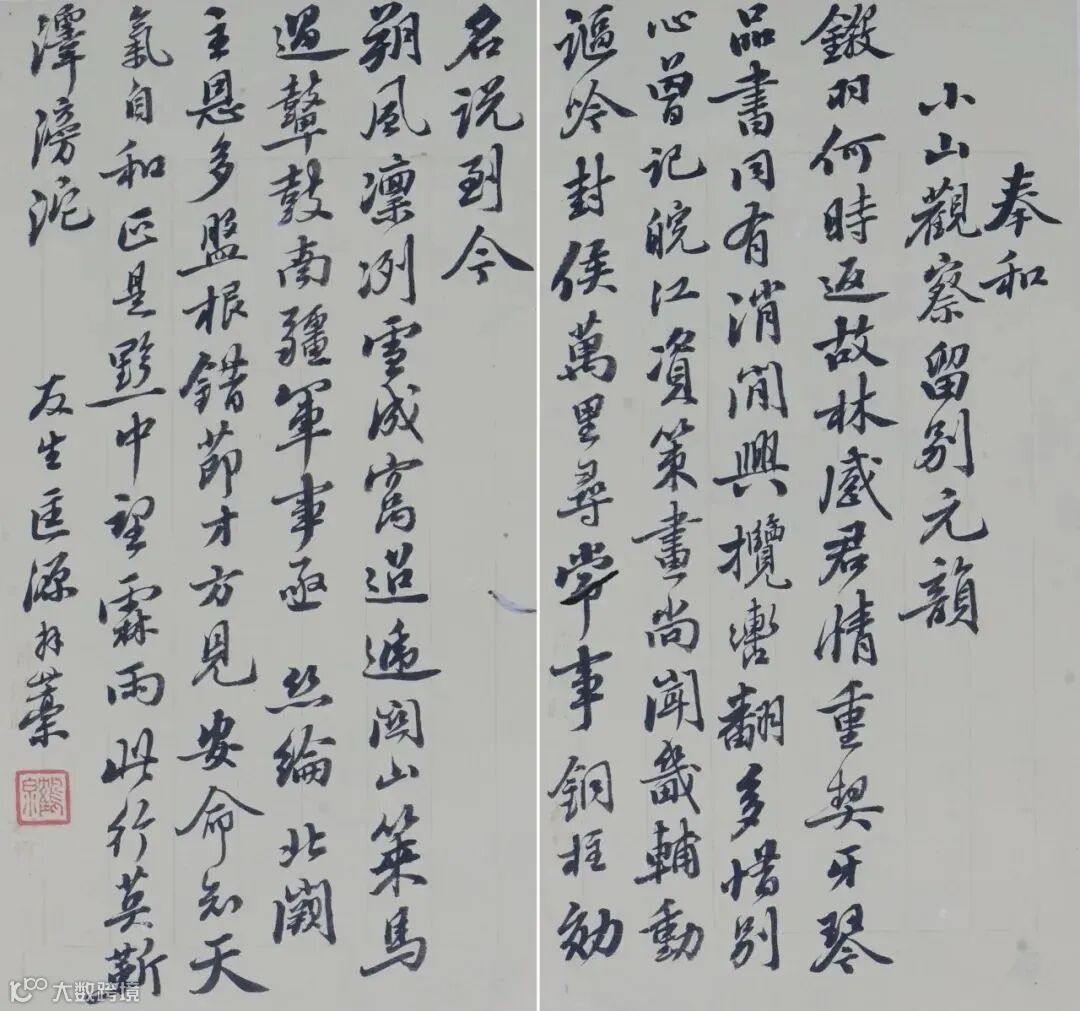 奉和
小山觀察留別元韻
鎩羽何時返故林感君情重契牙琴
品書同有消閒興攬轡翻多惜別
心曾記皖江資策畫尚聞畿輔動
謳吟封侯萬里尋常事銅柱勛
名說到今
朔風凜冽雪成窩迢遞關山策馬
過鼙鼓南疆軍事亟 絲綸北闕
主恩多盤根錯節才方見安命知天
氣自和正是黔中望霖雨此行莫靳
澤滂沱
友生匡源拜藁
鶴泉
大数跨境